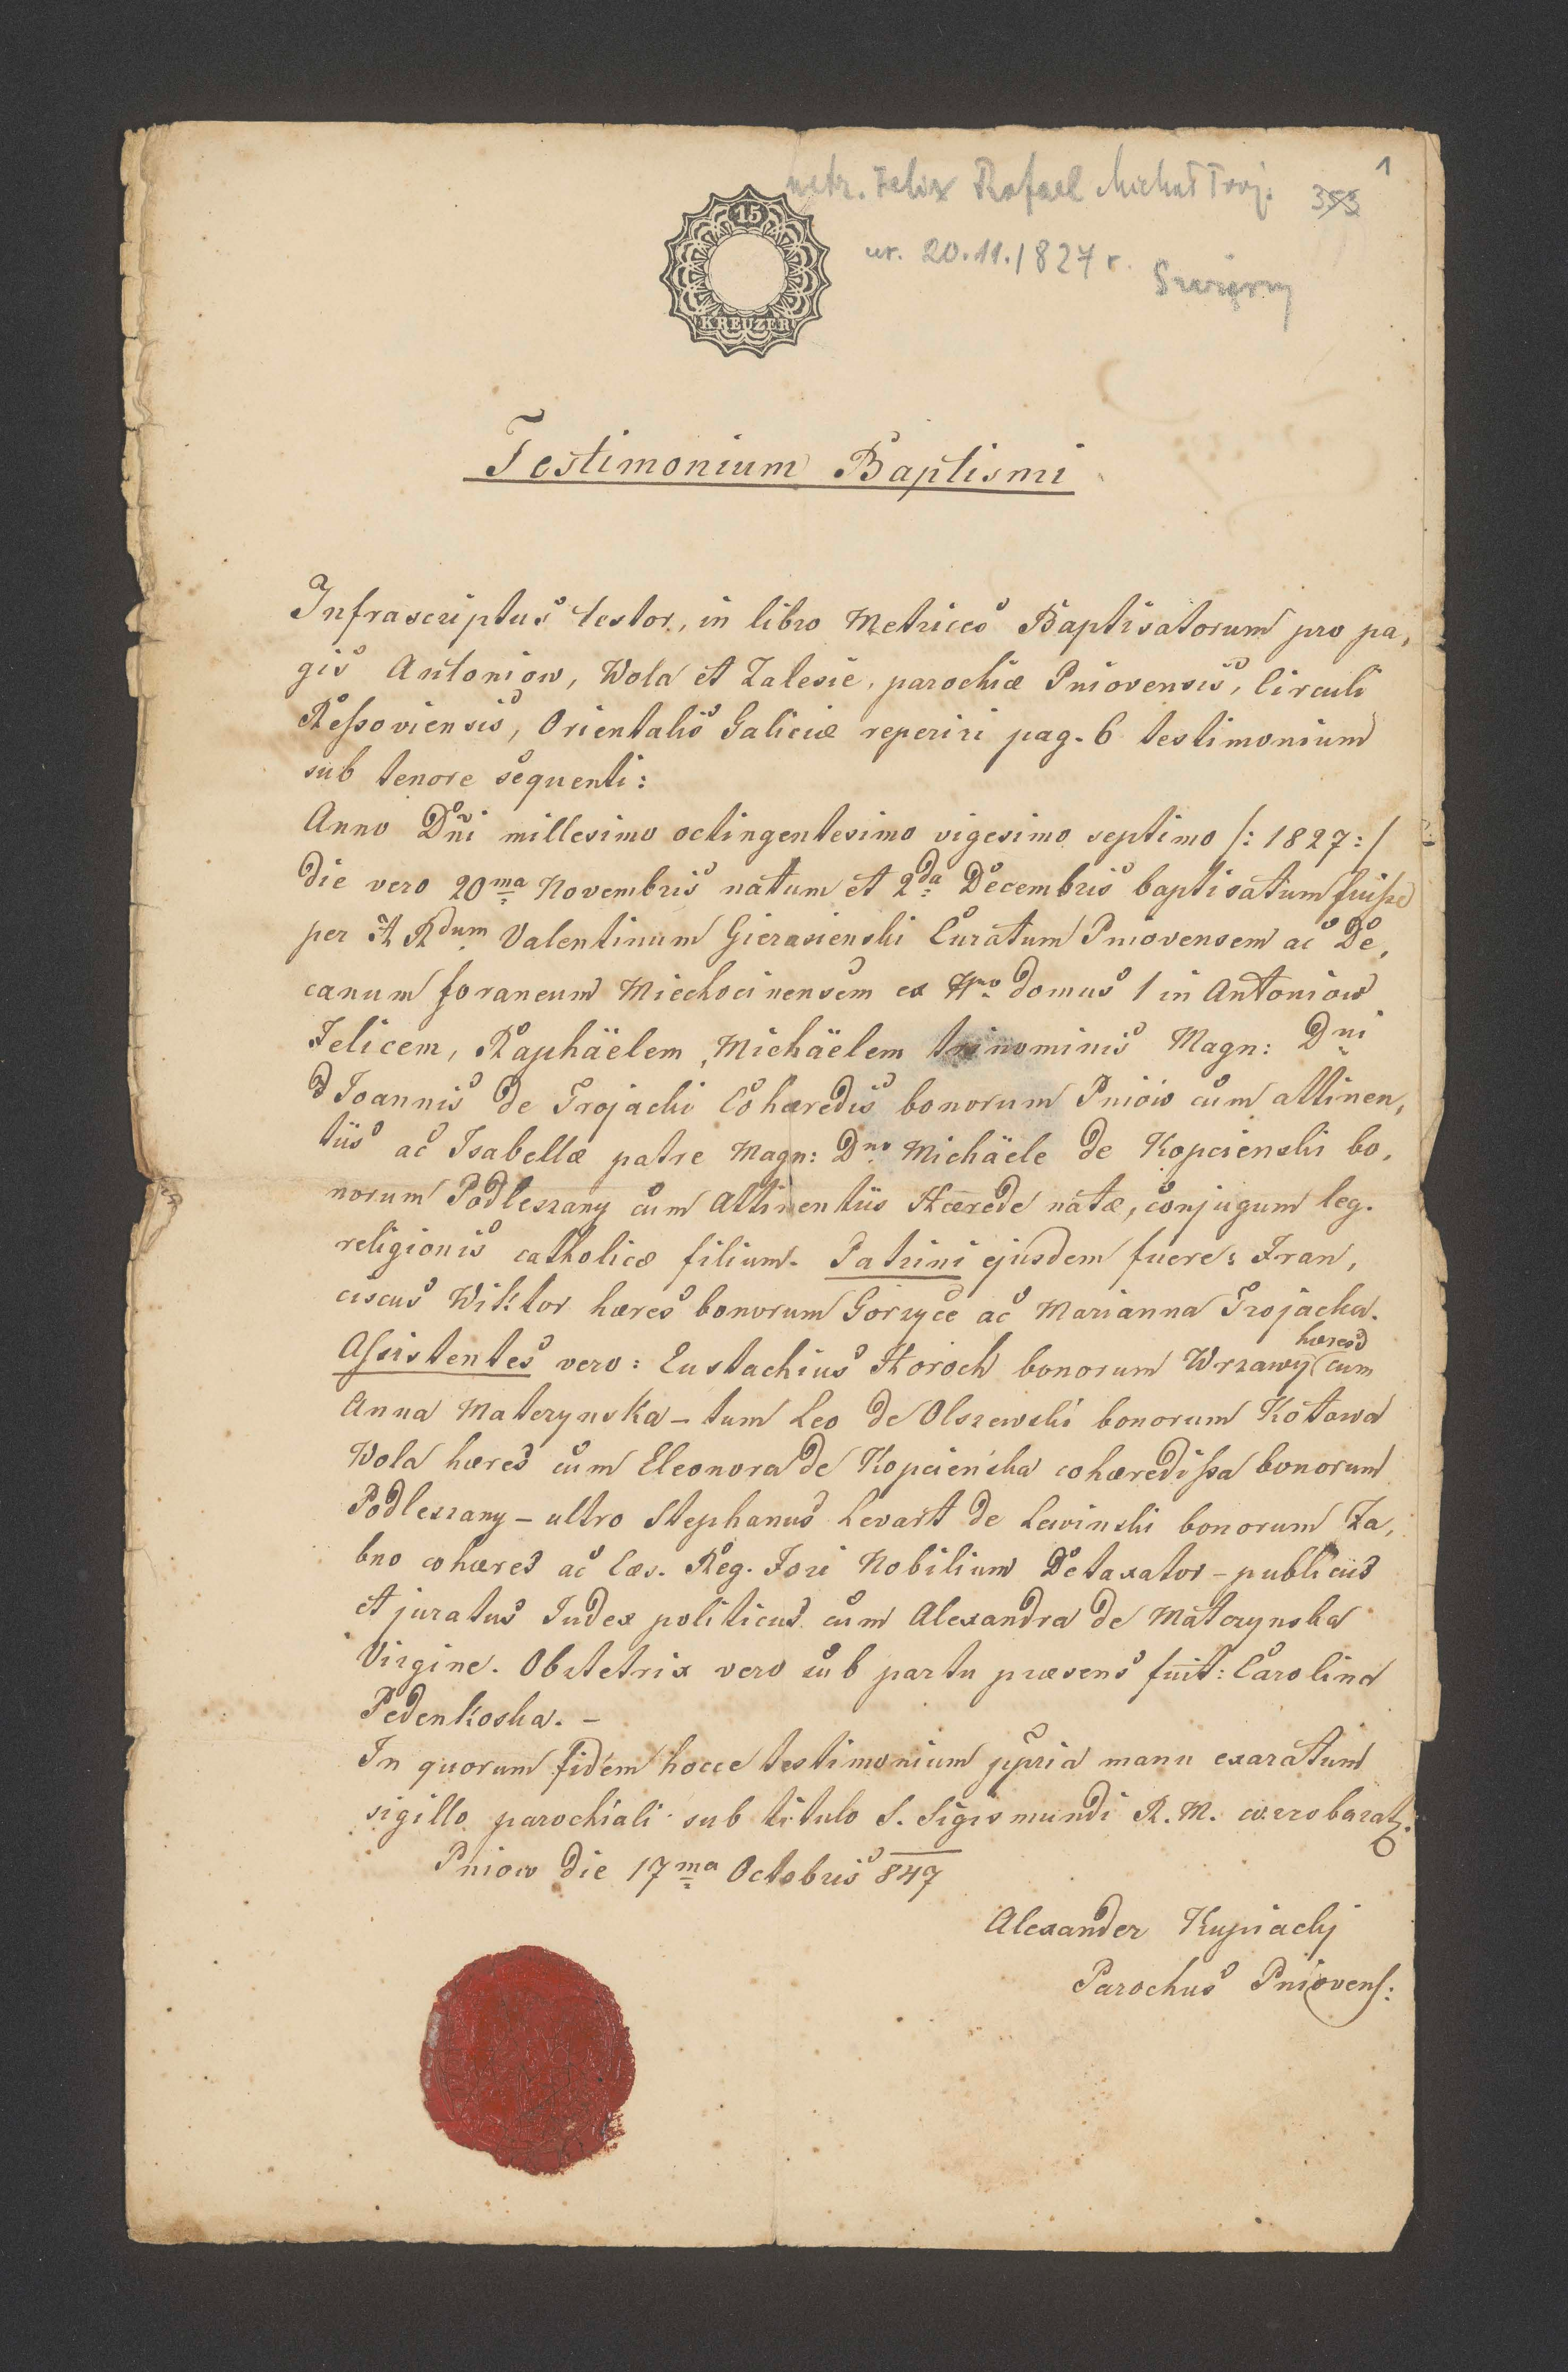 metr. Felix Rafael Michał Troj. 353 1
ur. 20.11.1827 r.
15
KREUZER
Testimonium Baptismi
Infrascriptus testor, in libro Metrices Baptisatorum pro pa,
gis Antoniow, Wola et Zalesie, parochiæ Pniovensis, Circuli
Reßoviensis, Orientalis Galiciæ reperiri pag. 6 testimonium
sub tenore sequenti:
Anno Dñi millesimo octingentesimo vigesimo septimo /: 1827 :/
die vero 20ma Novembris natum et 2da Decembris baptisatum fuiße
per A Rdum Valentinum Gierasienski Curatum Pniovensem ac De,
canum foraneum Miechocinensem ex Nro domus 1 in Antoniow
Felicem, Raphäelem, Michäelem trinominis Magn: Dni
D Joannis de Trojacki Cohæredis bonorum Pniow cum attinen,
tiis ac Isabellæ patre Magn: Dno Michäele de Kopcienski bo,
norum Podleszany cum Attinentiis Hærede natæ, conjugum leg.
religionis catholicæ filium. Patrini ejusdem fuere: Fran,
ciscus Wiktor hæres bonorum Gorzyce ac Marianna Trojacka.
Aſsistentes vero: Eustachius Horoch bonorum Wrzawy hæres cum
Anna Materzynska – tum Leo de Olszewski bonorum Kotowa
Wola hæres cum Eleonora de Kopcieńska cohæredißa bonorum
Podleszany – ultro Stephanus Levart de Lewinski bonorum Za,
bno cohæres ac Cæs. Reg. Fori Nobilium Detaxator – publicus
et juratus Judex politicus cum Alexandra de Materzynska
Virgine. Obstetrix vero sub partu præsens fuit: Carolina
Pedenkoska. –
In quorum fidem hocce testimonium ppria manu exaratum
sigillo parochiali sub titulo S. Sigismundi R. M. corrobarat.
Pniow die 17ma Octobris 847
Alexander Kupiacky
Parochus Pniovenſ: